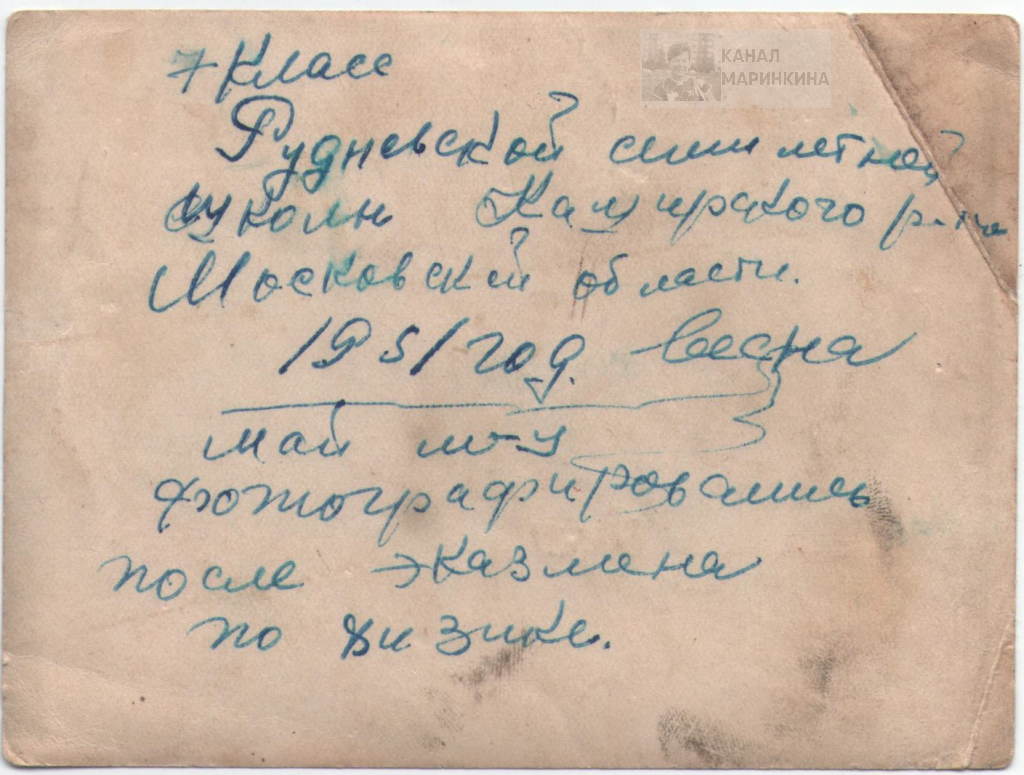 КАНАЛ
МАРИНКИНА
7 класс
Рудневской семилетной
школы Каширского р-на
Московской области.
1951 год. весна
май м-ц
фотографировались
после эказмена
по физике.